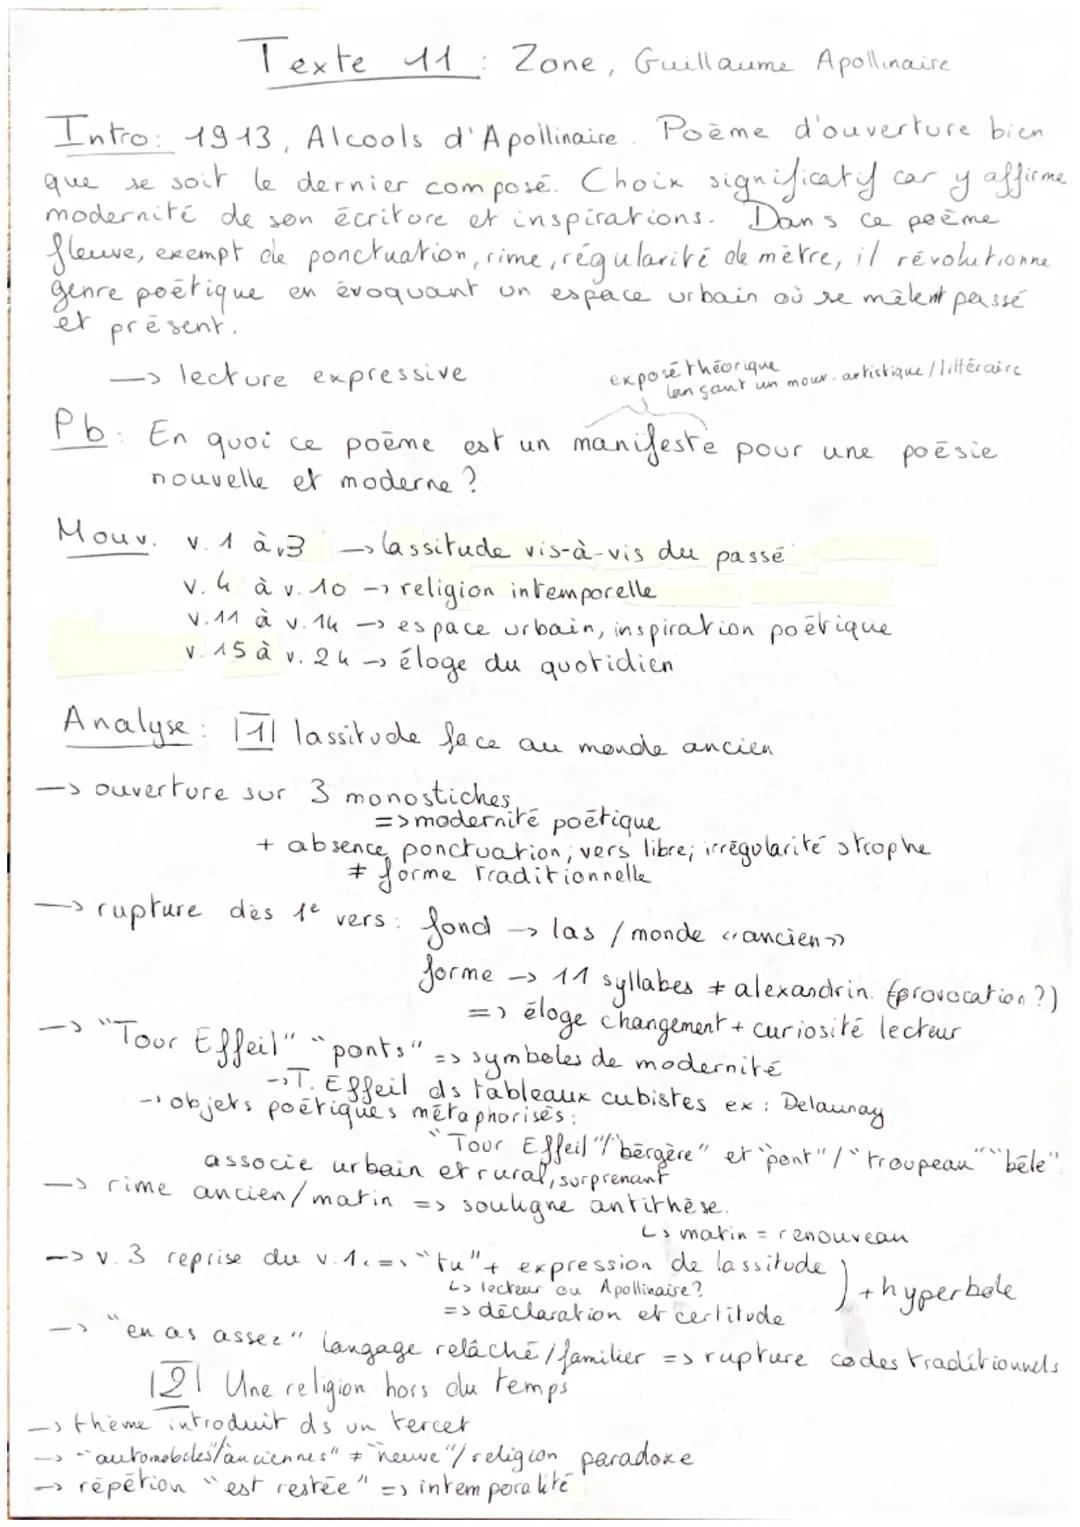 Texte 11 : Zone, Guillaume Apollinaire
Intro: 1913, Alcools d'Apollinaire. Poème d'ouverture bien
que se soit le dernier composé. Choix significatif car y affirme
modernité de son écriture et inspirations. Dans ce poème
fleuve, exempt de ponctuation, rime, régularité de mètre, il révolutionne
genre poétique en évoquant un espace urbain où se mêlent passé
et présent.
—> lecture expressive
exposé théorique
lançant un mouv. artistique / littéraire
Pb: En quoi ce poème est un manifeste pour une poésie
nouvelle et moderne ?
Mouv. v. 1 à v.3 —> lassitude vis-à-vis du passé
v. 4 à v. 10 -> religion intemporelle
v. 11 à v. 14 -> espace urbain, inspiration poétique
v. 15 à v. 24 -> éloge du quotidien
Analyse : |1| lassitude face au monde ancien
—> ouverture sur 3 monostiches
=> modernité poétique
+ absence ponctuation; vers libre; irrégularité strophe
≠ forme traditionnelle
—> rupture dès 1e vers : fond -> las / monde «ancien»
forme -> 11 syllabes ≠ alexandrin. (provocation ?)
=> éloge changement + curiosité lecteur
-> "Tour Effeil" "ponts" => symboles de modernité
-> T. Effeil ds tableaux cubistes ex : Delaunay
-> objets poétiques métaphorisés :
"Tour Effeil"/"bergère" et "pont"/"troupeau" "bêle"
associe urbain et rural, surprenant
-> rime ancien/matin => souligne antithèse.
↳ matin = renouveau
-> v. 3 reprise du v. 1. => "tu" + expression de lassitude ) + hyperbole
↳ lecteur ou Apollinaire ?
=> déclaration et certitude
-> "en as assez" langage relâché / familier => rupture codes traditionnels
|2| Une religion hors du temps
-> thème introduit ds un tercet
-> "automobiles"/"anciennes" ≠ "neuve"/religion paradoxe
-> répétion "est restée" => intemporalité